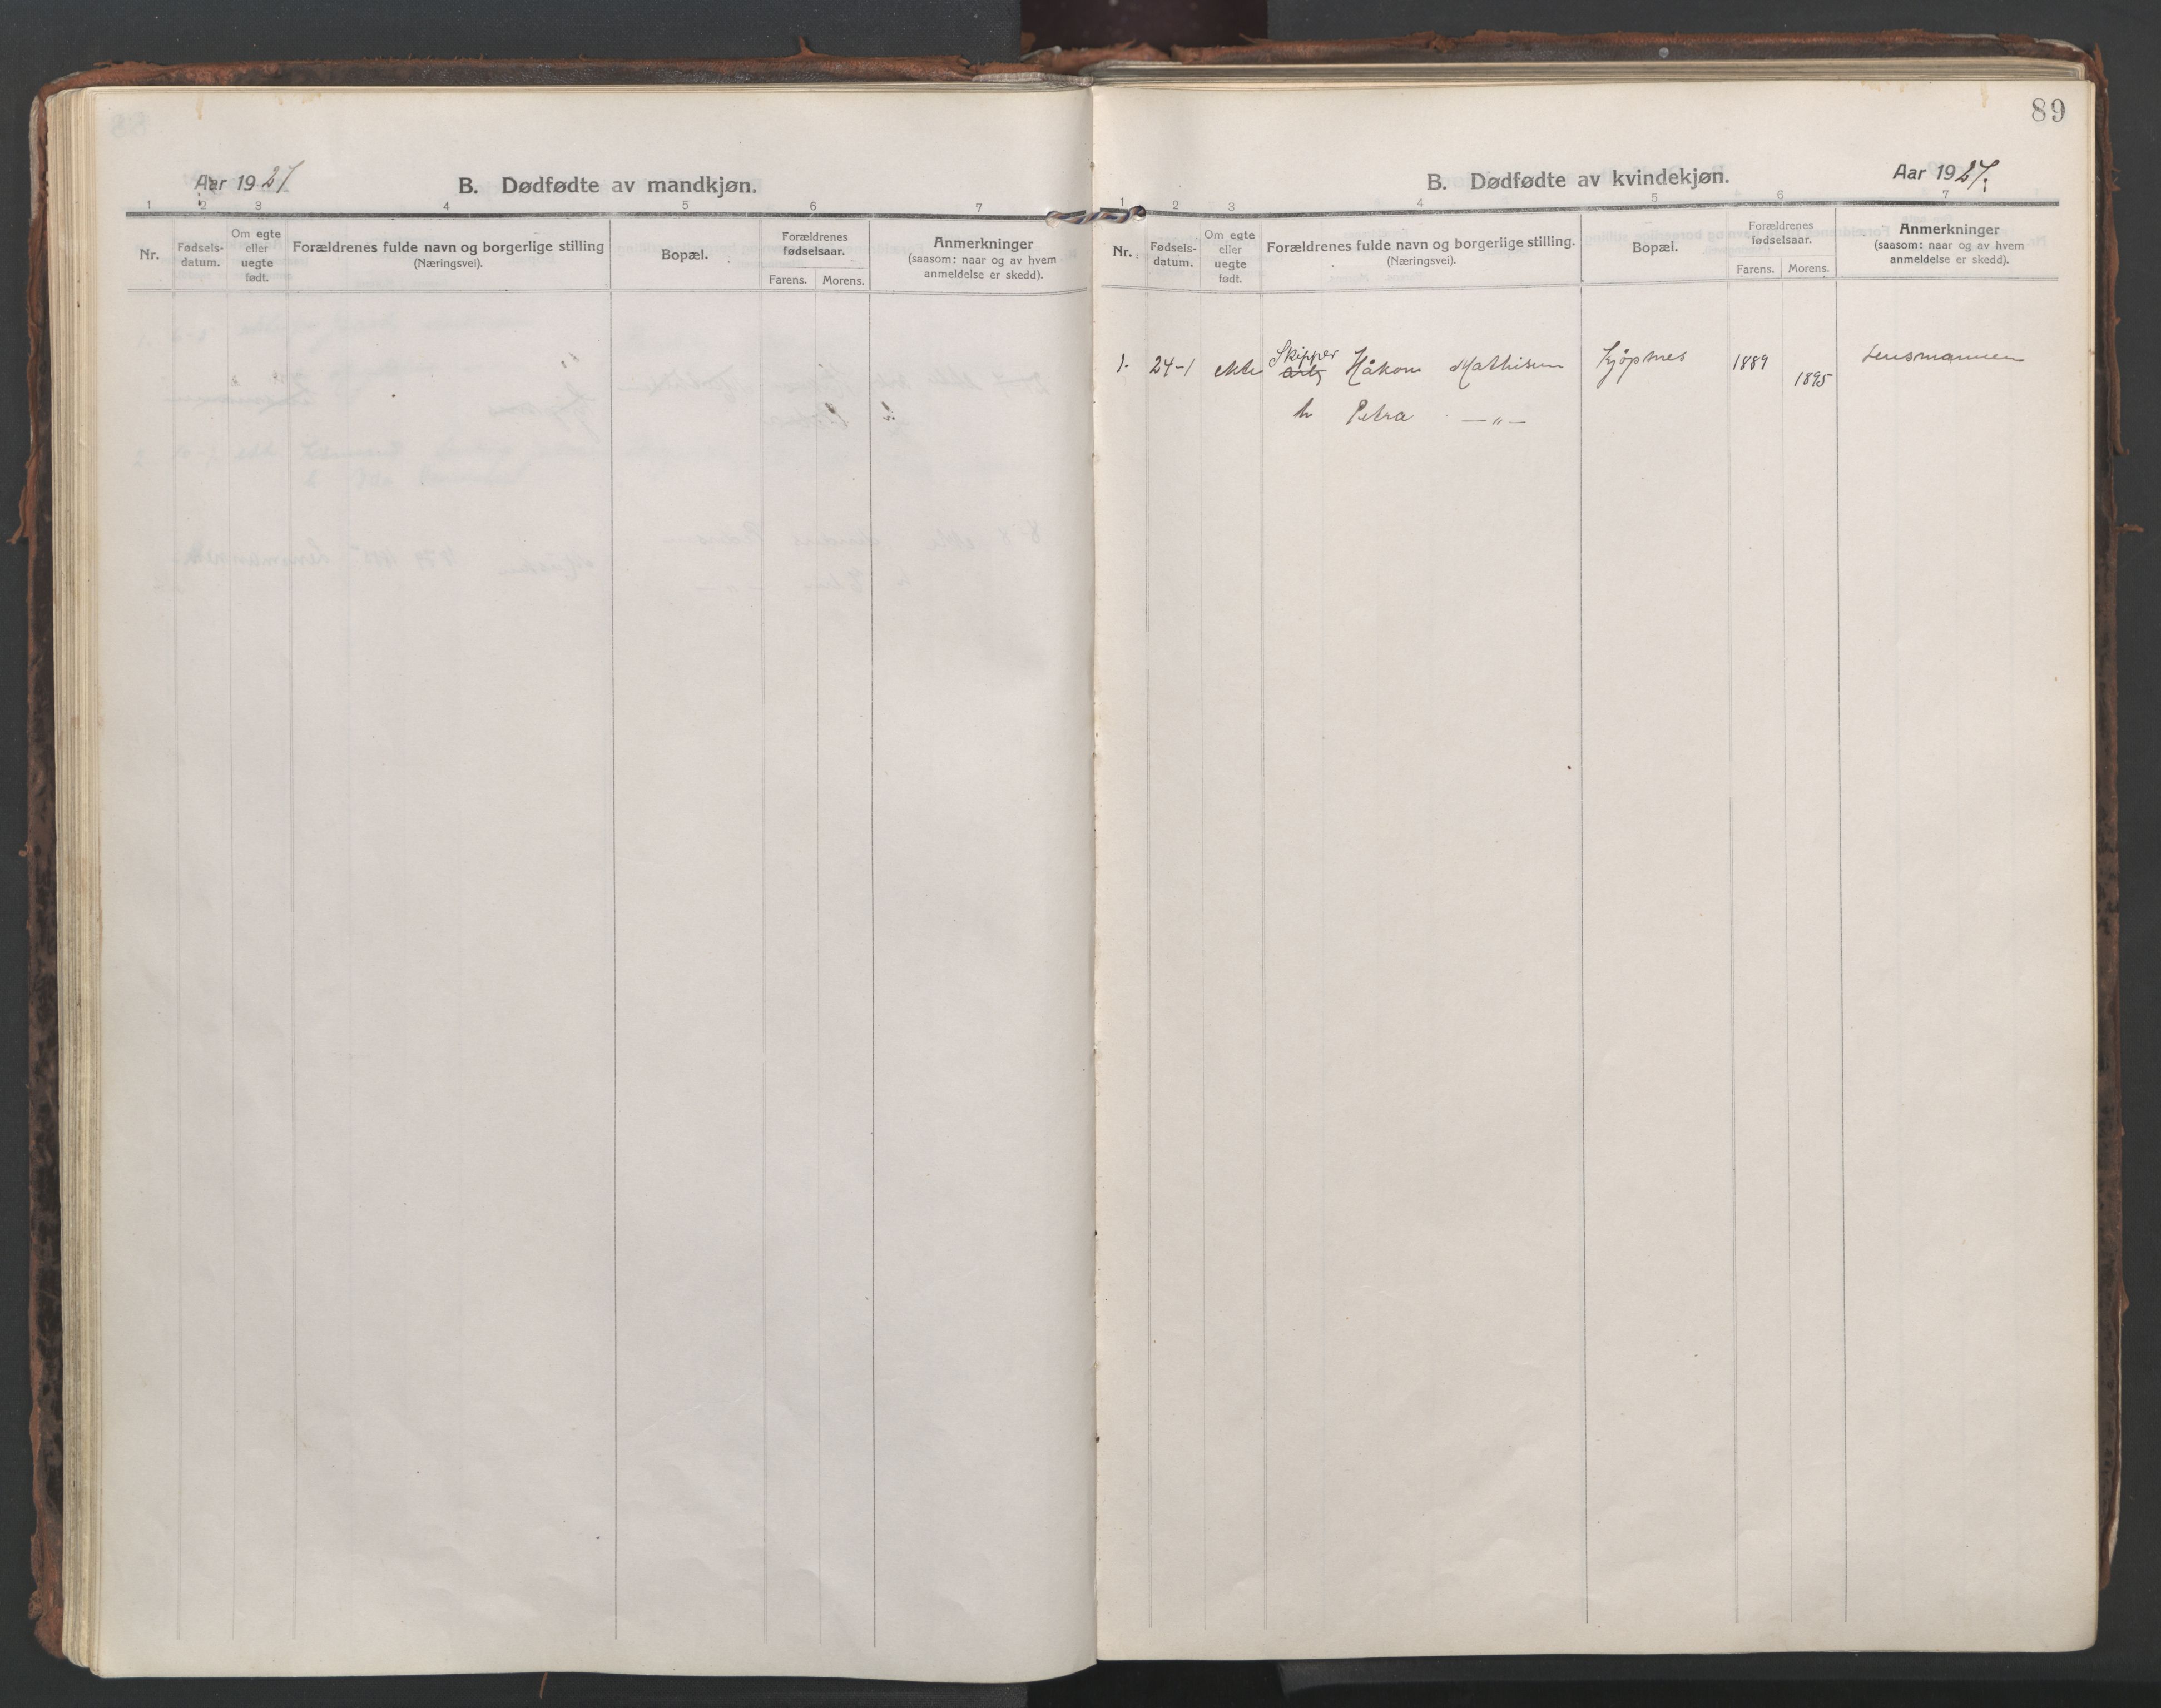 Aar 1927
B. Dødfødte av mandkjøn.
1 2 3 4 5 6 7
Nr.
Fødsels-
datum.
Om egte
eller
uegte
født.
Forældrenes fulde navn og borgerlige stilling
(Næringsvei).
Bopæl.
Forældrenes
fødselsaar.
Farens. Morens.
Anmerkninger
(saasom: naar og av hvem
anmeldelse er skedd).
89
B. Dødfødte av kvindekjøn.
Aar 1927.
1 2 3 4 5 6 7
Nr.
Fødsels-
datum.
Om egte
eller
uegte
født.
Forældrenes fulde navn og borgerlige stilling.
(Næringsvei).
Bopæl.
Forældrenes
fødselsaar.
Farens. Morens.
Anmerkninger
(saasom: naar og av hvem
anmeldelse er skedd).
Skipper
1. 24-1 ekte Håkon Mathisen Kjøpsnes 1889 1895 Lensmannen
h Petra —〃—